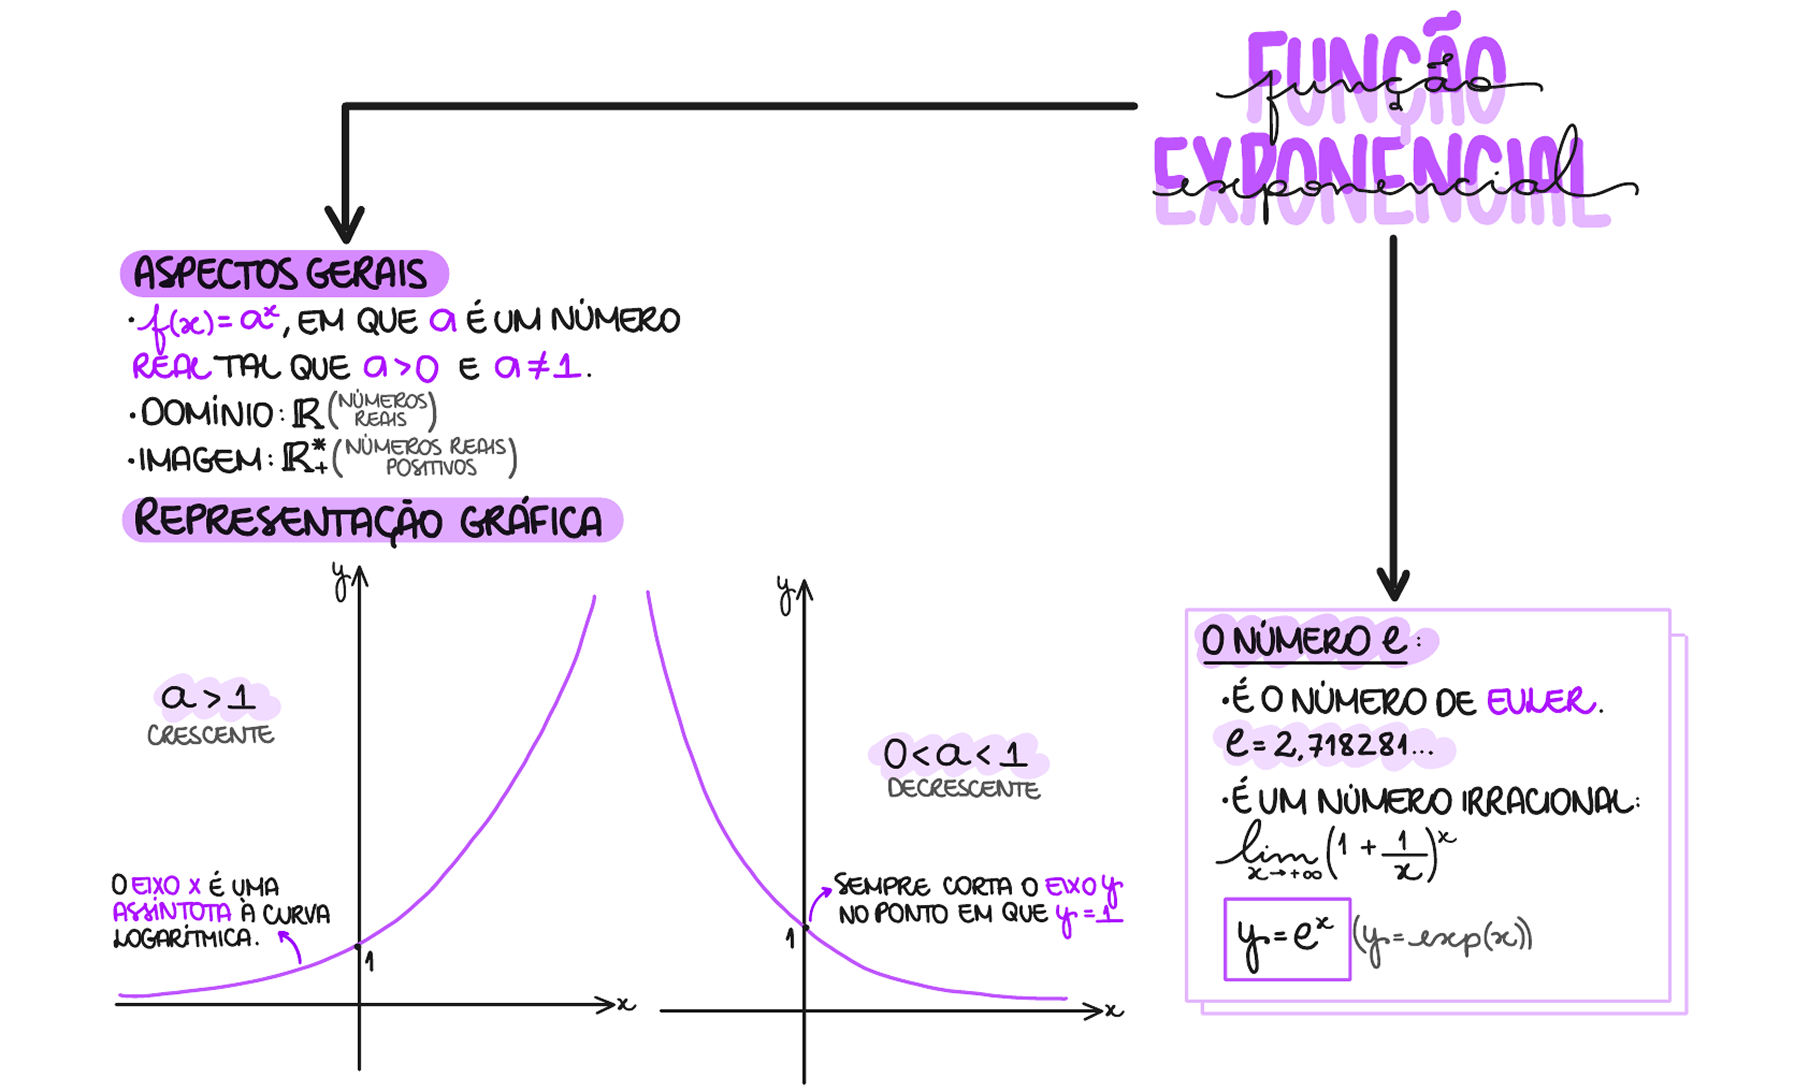 FUNÇÃO
função
EXPONENCIAL
exponencial
ASPECTOS GERAIS
• f(x) = aˣ, EM QUE a É UM NÚMERO
REAL TAL QUE a > 0 E a ≠ 1.
• DOMÍNIO: ℝ (NÚMEROS REAIS)
• IMAGEM: ℝ*₊ (NÚMEROS REAIS POSITIVOS)
REPRESENTAÇÃO GRÁFICA
y
a > 1
CRESCENTE
O EIXO X É UMA
ASSÍNTOTA À CURVA
LOGARÍTMICA.
1
x
y
0 < a < 1
DECRESCENTE
SEMPRE CORTA O EIXO y
NO PONTO EM QUE y = 1
1
x
O NÚMERO e:
• É O NÚMERO DE EULER.
e = 2,718281...
• É UM NÚMERO IRRACIONAL:
lim x→+∞ (1 + 1/x)ˣ
y = eˣ (y = exp(x))